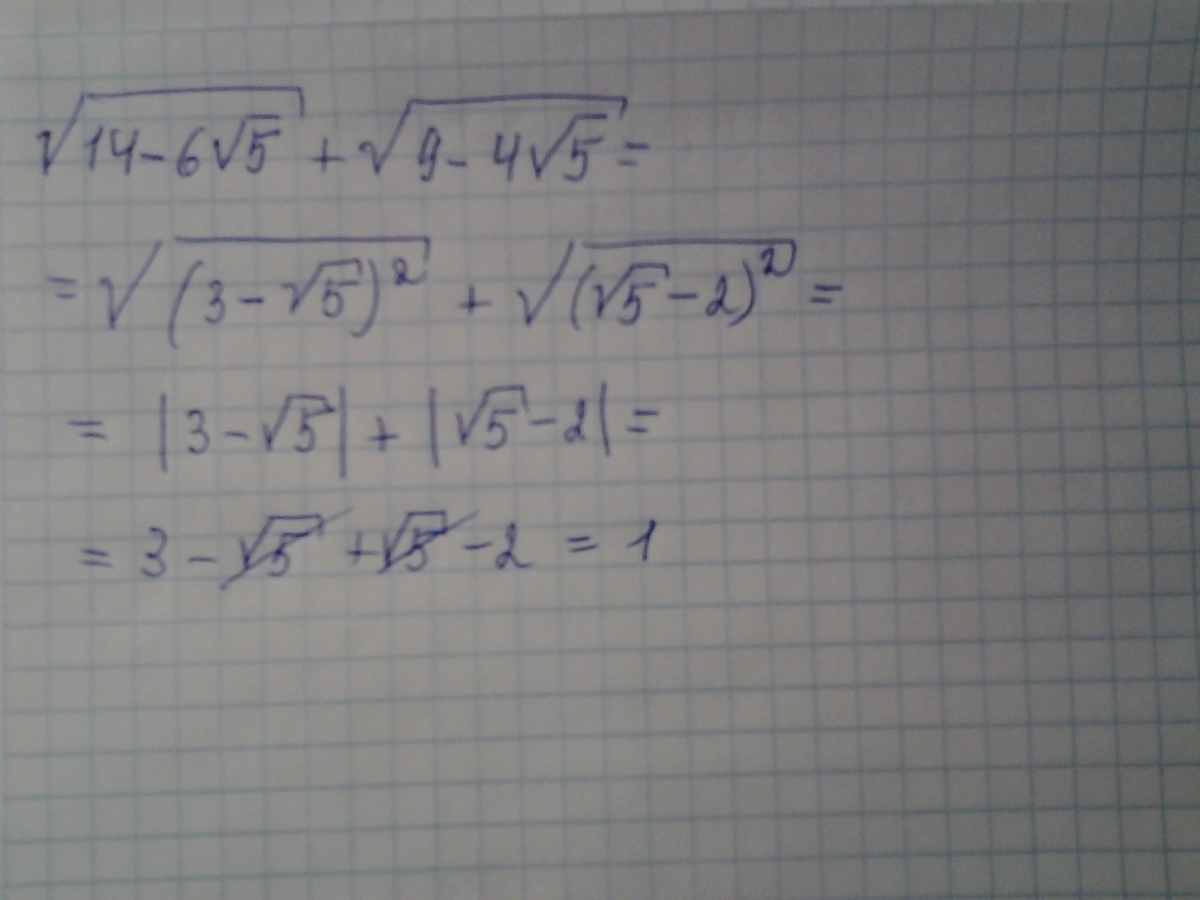 √(14-6√5) + √(9-4√5) =
= √((3-√5)²) + √((√5-2)²) =
= |3-√5| + |√5-2| =
= 3-√5+√5-2 = 1